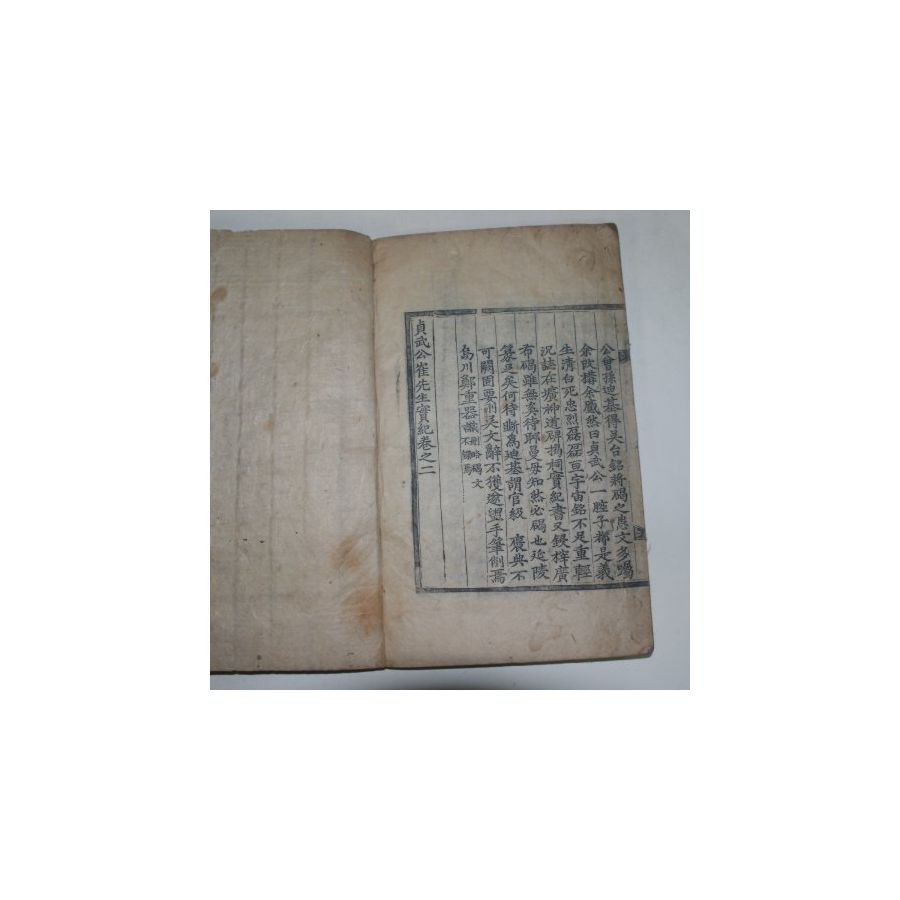 公曾孫迪基得吳台銘將碣之應文多
余故撰余慼然曰貞武公一腔子都是義
生清白死忠烈磊磊亘宇宙銘不足重輕
況誌在壙神道碑揭祠實紀書又鋟梓廣
布碣雖無奚待耶曼毋知然必碣也延陵
篆足矣何待斷焉迪基謂官級 褒典不
可闕固要刪吳文辭不獲遂盥手筆削焉
烏川鄭重器識 刪略碣文不錄焉
貞武公崔先生實紀卷之二